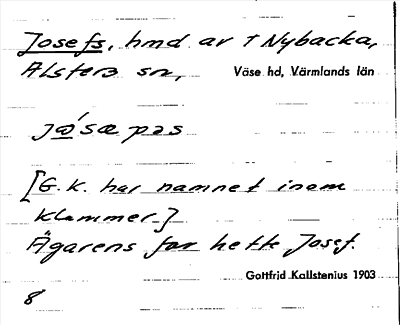 Josefs, hmd av † Nybacka,
Alsters sn, Väse hd, Värmlands län
[G. K. har namnet inom
klammer.]
Ägarens far hette Josef.
Gottfrid Kallstenius 1903
8